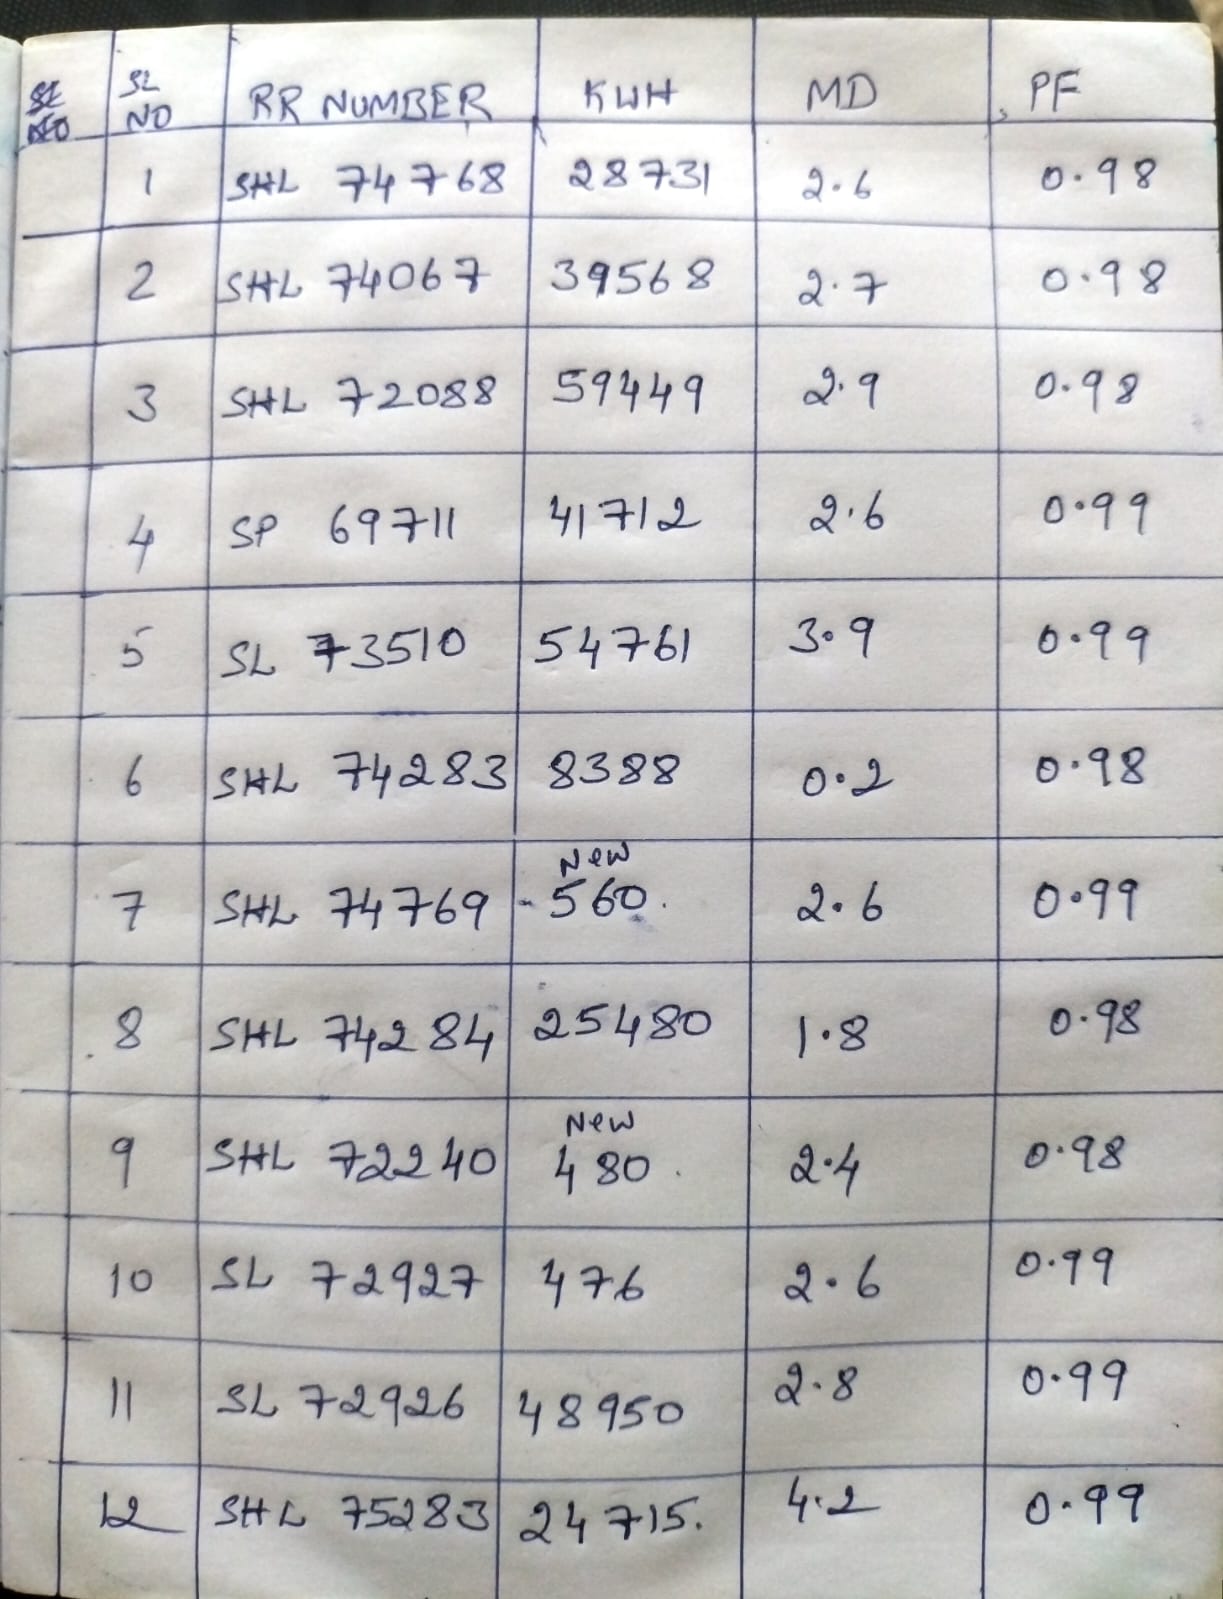 SL NO SL NO RR NUMBER KWH MD PF
1 SHL 74768 28731 2.6 0.98
2 SHL 74067 39568 2.7 0.98
3 SHL 72088 59449 2.9 0.98
4 SP 69711 41712 2.6 0.99
5 SL 73510 54761 3.9 0.99
6 SHL 74283 8388 0.2 0.98
New
7 SHL 74769 560. 2.6 0.99
8 SHL 74284 25480 1.8 0.98
New
9 SHL 72240 480. 2.4 0.98
10 SL 72927 476 2.6 0.99
11 SL 72926 48950 2.8 0.99
12 SHL 75283 24715. 4.2 0.99